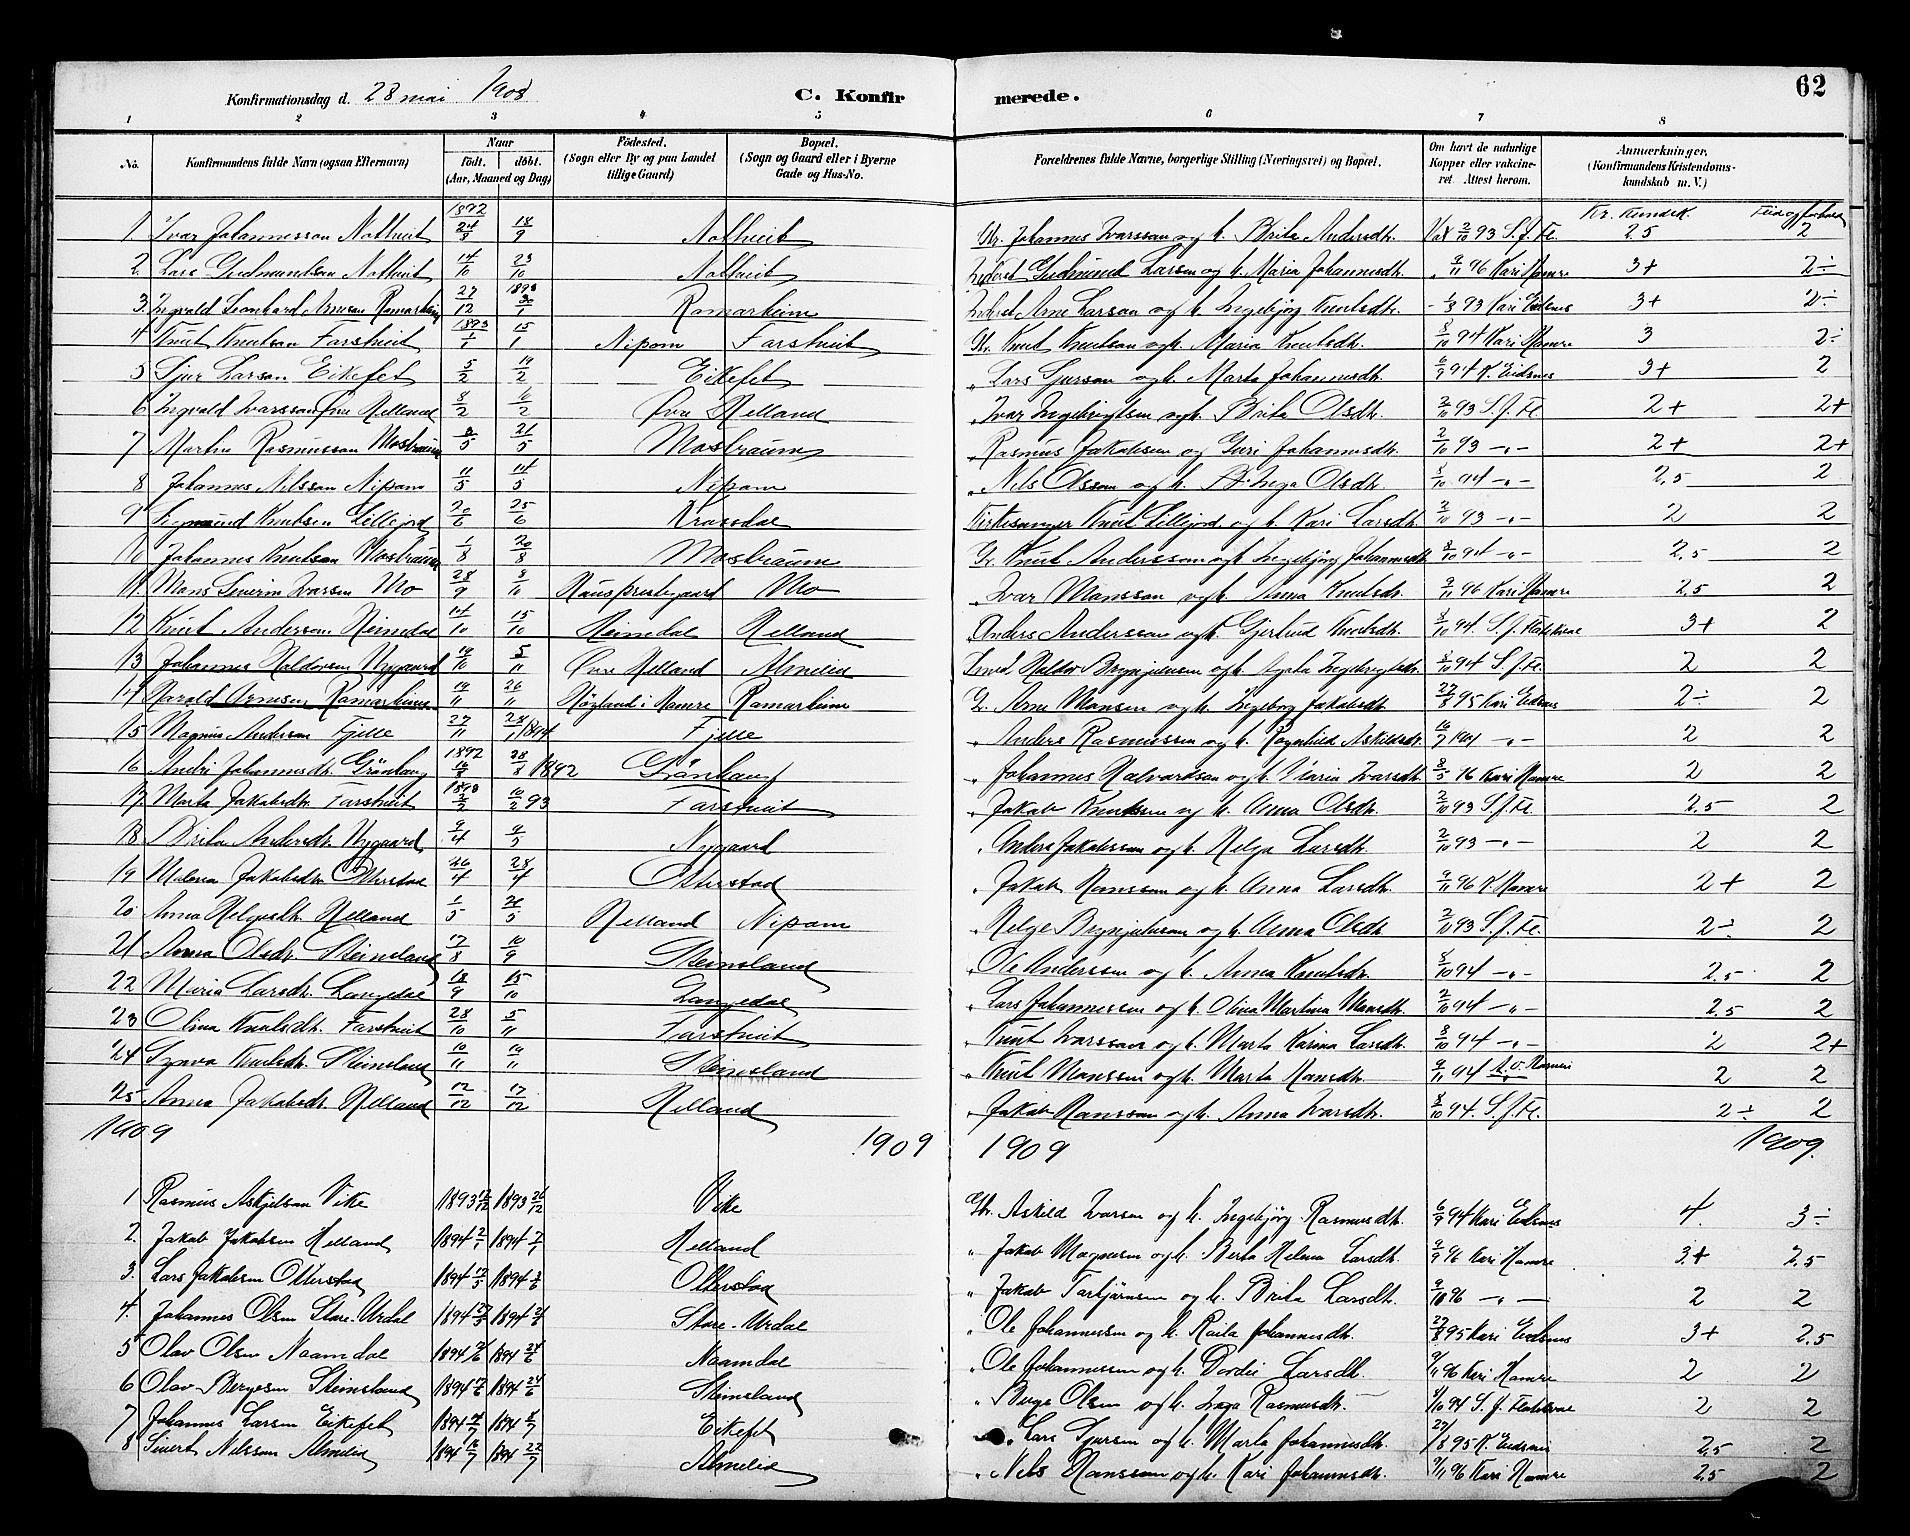 62
Konfirmationsdag d. 28 mai 1908 C. Konfirmerede.
1 2 3 4 5 6 7 8
No. Konfirmandens fulde Navn (ogsaa Efternavn) Naar født. døbt. (Aar, Maaned og Dag) Fødested. (Sogn eller By og paa Landet tillige Gaard) Bopæl. (Sogn og Gaard eller i Byerne Gade og Hus-No. Forældrenes fulde Navne, borgerlige Stilling (Næringsvei) og Bopæl. Om havt de naturlige Kopper eller vakcineret. Attest herom. Anmærkninger. (Konfirmandens Kristendomskundskab m. V.)
Kr. Kundsk.
1. Ivar Johannesson Nothveit 1892 24/8 18/9 Nothveit Gbr. Johannes Ivarsson og h. Brita Andersdtr. Vax 2/10 93 S. J. Fl. 2.5 2
2. Lars Gudmundsen Nothveit 14/10 23/10 Nothveit Gudmund Larsen og h. Maria Johannesdtr. 9/11 96 Kari Hamre 3+ 2÷
3. Ingvald Leonhard Arnesen Ramarheim 27/12 1893 30/1 Ramarheim Arne Larson og h. Ingebjørg Knutsdtr. 93 Kari Eidsnes 3+ 2÷
4 Knut Knutson Farstveit 1893 1/1 15/1 Nipom Farstveit Gbr. Knut Knutson og h. Maria Knutsdtr. 8/10 94 Kari Hamre 3 2÷
5 Sjur Larsen Eikefet 5/2 19/2 Eikefet " Lars Sjurson og h. Marta Johannesdtr. 6/9 94 K. Eidsnes 3+ 2
6 Ingvald Ivarsson Øvre Helland 8/2 /2 Øvre Helland " Ivar Ingebrigtsen og h. Brita Olsdtr. 2/10 93 S. J. Fl. 2+ 2+
7 Martin Rasmusson Mostraum /5 21/5 Mostraum " Rasmus Jakobsen og Guri Johannesdtr. 2/10 93 -"- 2+ 2+
8 Johannes Nilsson Nipom 11/5 14/5 Nipom " Nils Olsson og h. Inga Olsdtr. 8/10 94 -"- 2,5 2
9 Sigmund Knutsen Lillejord 20/6 25/6 Krossdal Kirkesanger Knut Lillejord og h. Kari Larsdtr. 2/10 93 -"- 2 2
10 Johannes Knutson Mostraum 1/8 20/8 Mostraum G. Knut Anderssen og h. Ingebjørg Johannesdtr. 8/10 94 -"- 2,5 2
11 Mons Severin Ivarsen Mo 28/9 /10 Haus Prestegaard Mo " Ivar Monsson og h. Anna Knutsdtr. 9/11 96 Kari Hamre 2,5 2
12 Knut Anderson Heimdal 14/10 15/10 Heimdal Helland Anders Andersson og h. Gjertrud Knutsdtr. 8/10 94. S. J. Flatekval 3+ 2
13 Johannes Haldorsen Nygaard 19/10 5/11 Øvre Helland Almelid Haldor Brynjulvsen og h. Agata Ingebrigtsdtr. 8/10 94 S. J. Fl. 2 2
14 Harald Arnesen Ramarheim 19/11 26/11 Høgland i Hamre Ramarheim G. Arne Monsen og h. Ingeborg Jakobsdtr. 27/8 95 Kari Eidsnes 2÷ 2
15 Magnus Andersen Fjelle 27/11 28/1 1894 Fjelle " Anders Rasmussen og h. Ragnhild Askildsdtr. 16/7 1901 -"- 2 2
16 Andri Johannesdtr. Grønhaug 1892 16/8 28/8 1892 Grønhaug " Johannes Halvardson og h. Maria Ivarsdtr. 8/5 96 Kari Hamre 2 2
17 Marta Jakobsdtr. Farstveit 1893 2/2 10/2 93 Farstveit " Jakob Knutsen og h. Anna Olsdtr. 2/10 93 S. J. Fl. 2.5 2
18 Brita Andersdtr. Nygaard 9/4 9/5 Nygaard " Anders Jakobsson og h. Helga Larsdtr. 2/10 93 -"- 2 2
19 Malena Jakobsdtr. Otterstad /4 28/4 Otterstad " Jakob Hansson og h. Anna Larsdtr. 9/11 96 K. Hamre 2+ 2
20 Anna Helgesdtr. Helland 1/5 21/5 Helland Nipom " Helge Brynjulvson og h. Anna Olsdtr 2/10 93 S. J. Fl. 2÷ 2
21 Anna Olsdr. Steinsland 17/8 10/9 Steinsland " Ole Anderssen og h. Anna Knutsdr. 8/10 94 -"- 2,5 2
22 Maria Larsdtr. Langedal 18/9 15/10 Langedal " Lars Johannessen og h. Olina Martina Monsdtr. 2/10 94 -"- 2,5 2
23 Olina Knutsdtr. Farstveit 28/10 5/11 Farstveit " Knut Ivarsson og h. Marta Karina Larsdtr. 8/10 94 -"- 2 2+
24 Synva Knutsdtr. Steinsland 10/11 19/11 Steinsland " Knut Monssen og h. Marta Hansdtr. 9/11 94 2 2
25 Anna Jakobsdtr Helland 12/12 17/12 Helland " Jakob Hansson og h. Anna Ivarsdtr. 8/10 94. S. J. Fl. 2÷ 2
1909 1909 1909 1909.
1 Rasmus Askjelson Vike 1893 12/12 1893 26/12 Vike Gbr. Askild Ivarsen og h. Ingebjørg Rasmusdtr. 6/9 94 Kari Eidsnes 4. 3÷
2. Jakob Jakobsen Helland 1894 2/1 1894 7/1 Helland " Jakob Magnesen og h. Berta Helena Larsdtr. 9/9 96 Kari Hamre 3+ 2,5
3. Lars Jakobsen Otterstad 1894 1894 Otterstad " Jakob Torbjørnsen og h. Brita Larsdtr. 9/10 96 -"- 2 2
4. Johannes Olsen Store-Urdal 1894 1894 Store-Urdal " Ole Johannesen og h. Raila Johannesdtr. 27/8 95 Kari Eidsnes 3+ 2,5
5 Olav Olsen Naamdal 1894 1894 24/6 Naamdal " Ole Johannessen og h. Dordei Larsdtr. 9/11 96 Kari Hamre 2 2
6 Olav Bergesen Steinsland 1894 17/6 1894 24/6 Steinsland " Berge Olsen og h. Inga Rasmusdtr. 8/10 94 S. J. Flatekval 2 2
7 Johannes Larsen Eikefet 1894 1894 Eikefet " Lars Sjursen og h. Marta Johannesdtr. 27/8 95 K. Eidsnes 2,5 2
8 Sivert Nilsson Almelid 1894 1894 22/7 Almelid " Nels Hansson og h. Kari Johannesdtr. 9/11 96 Kari Hamre 2,5 2